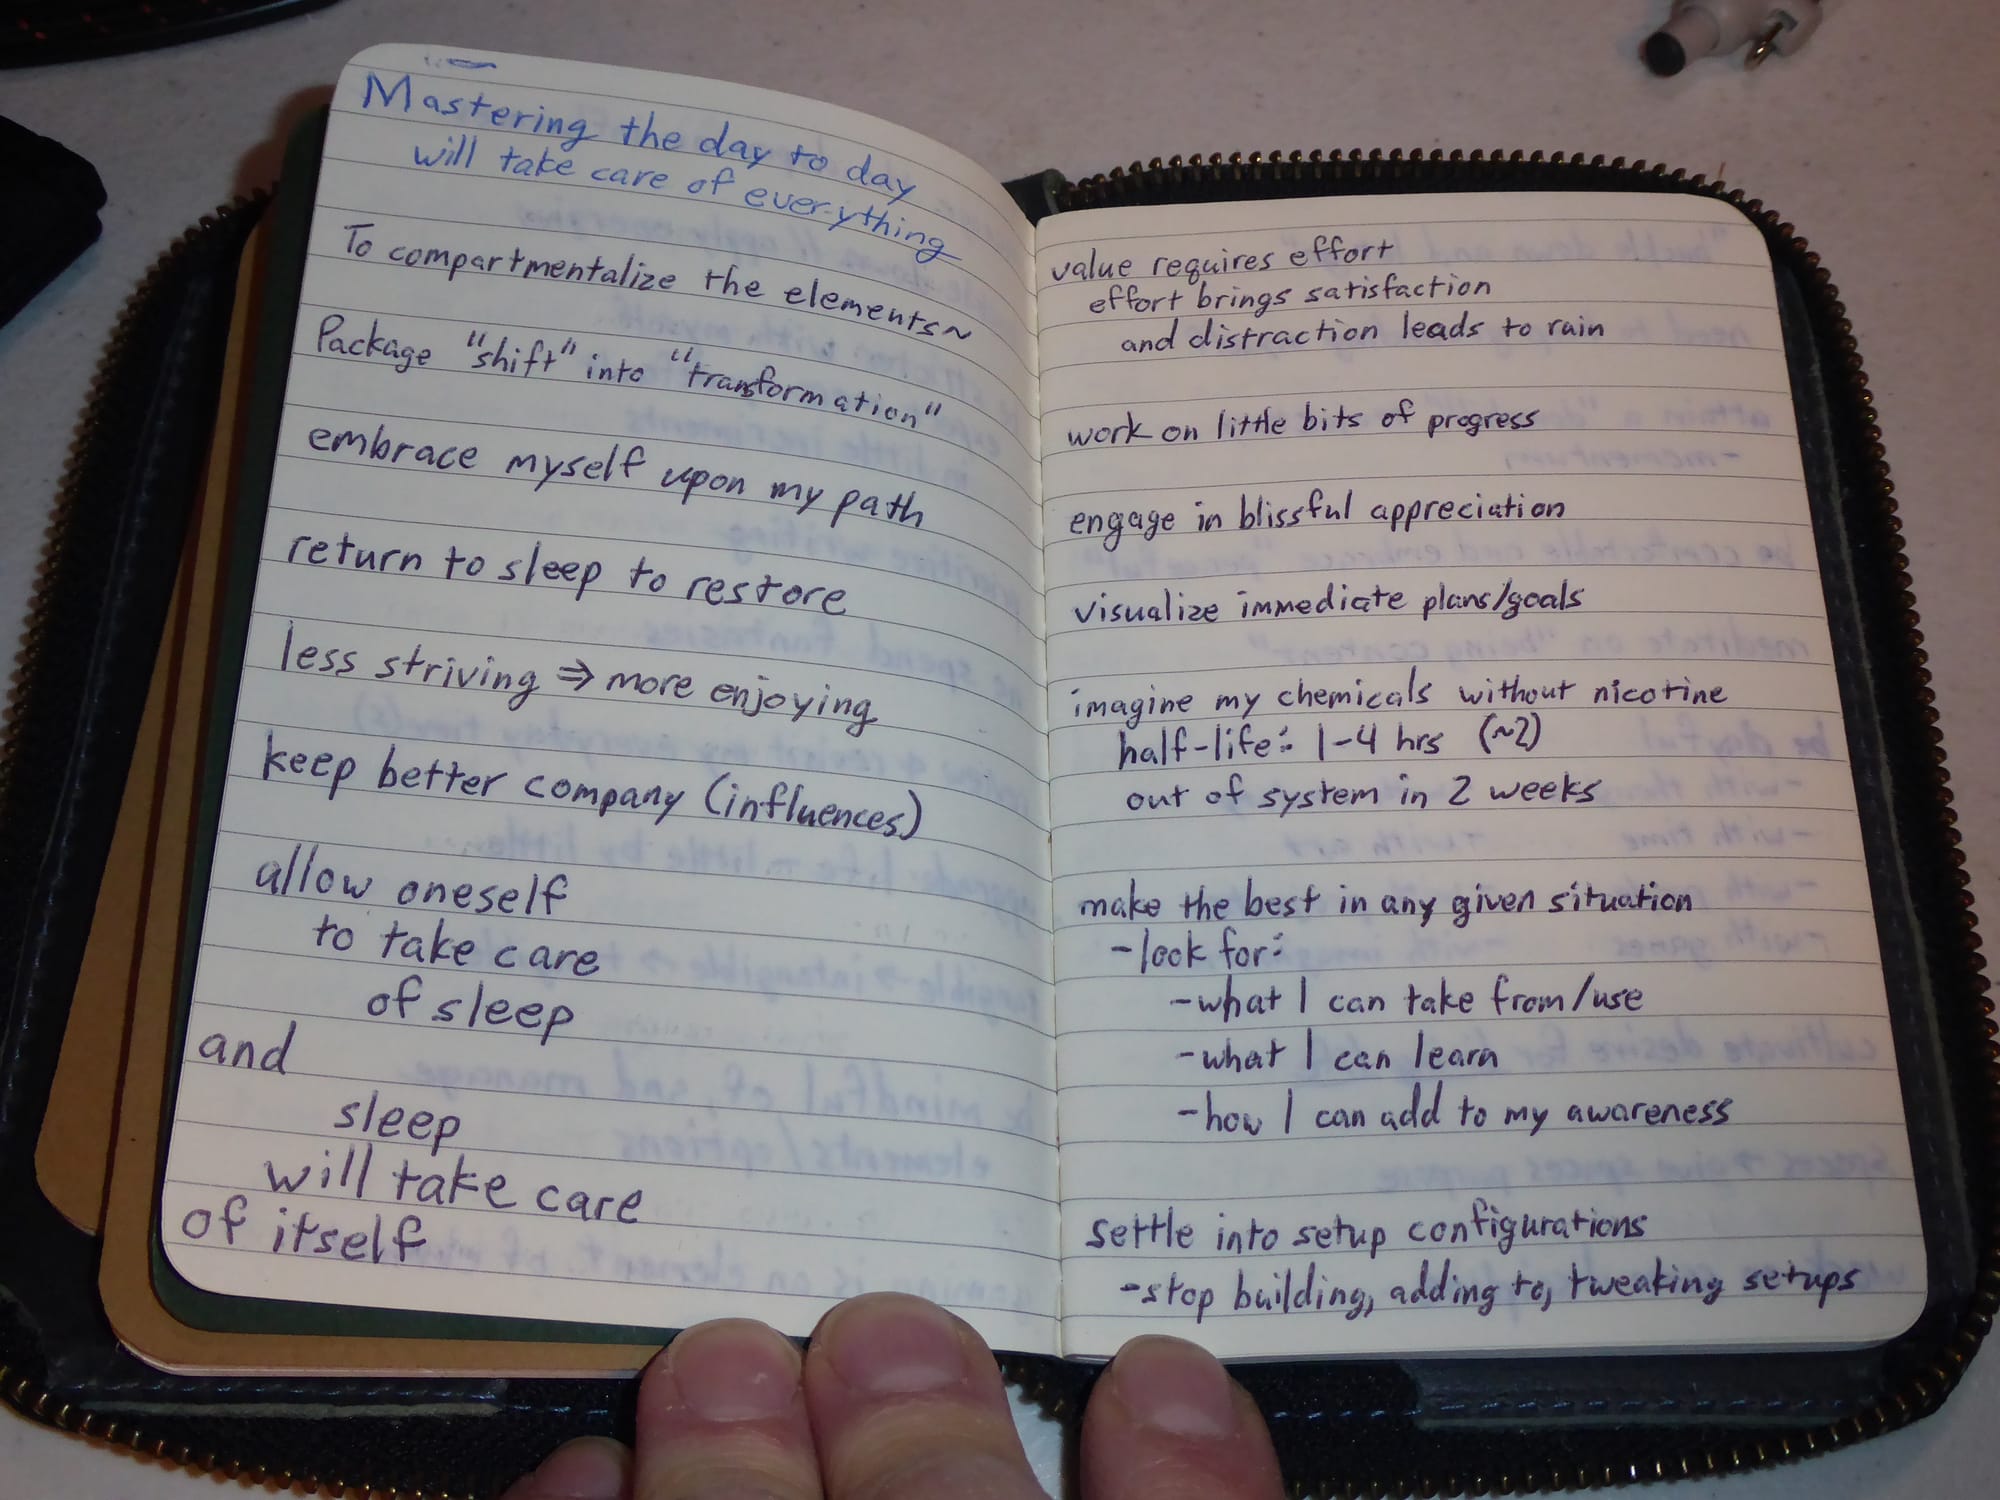 Mastering the day to day
will take care of everything
To compartmentalize the elements~
Package "shift" into "transformation"
embrace myself upon my path
return to sleep to restore
less striving ⇒ more enjoying
keep better company (influences)
allow oneself
to take care
of sleep
and
sleep
will take care
of itself
value requires effort
effort brings satisfaction
and distraction leads to ruin
work on little bits of progress
engage in blissful appreciation
visualize immediate plans/goals
imagine my chemicals without nicotine
half-life: 1-4 hrs (~2)
out of system in 2 weeks
make the best in any given situation
-look for:
-what I can take from/use
-what I can learn
-how I can add to my awareness
settle into setup configurations
-stop building, adding to, tweaking setups